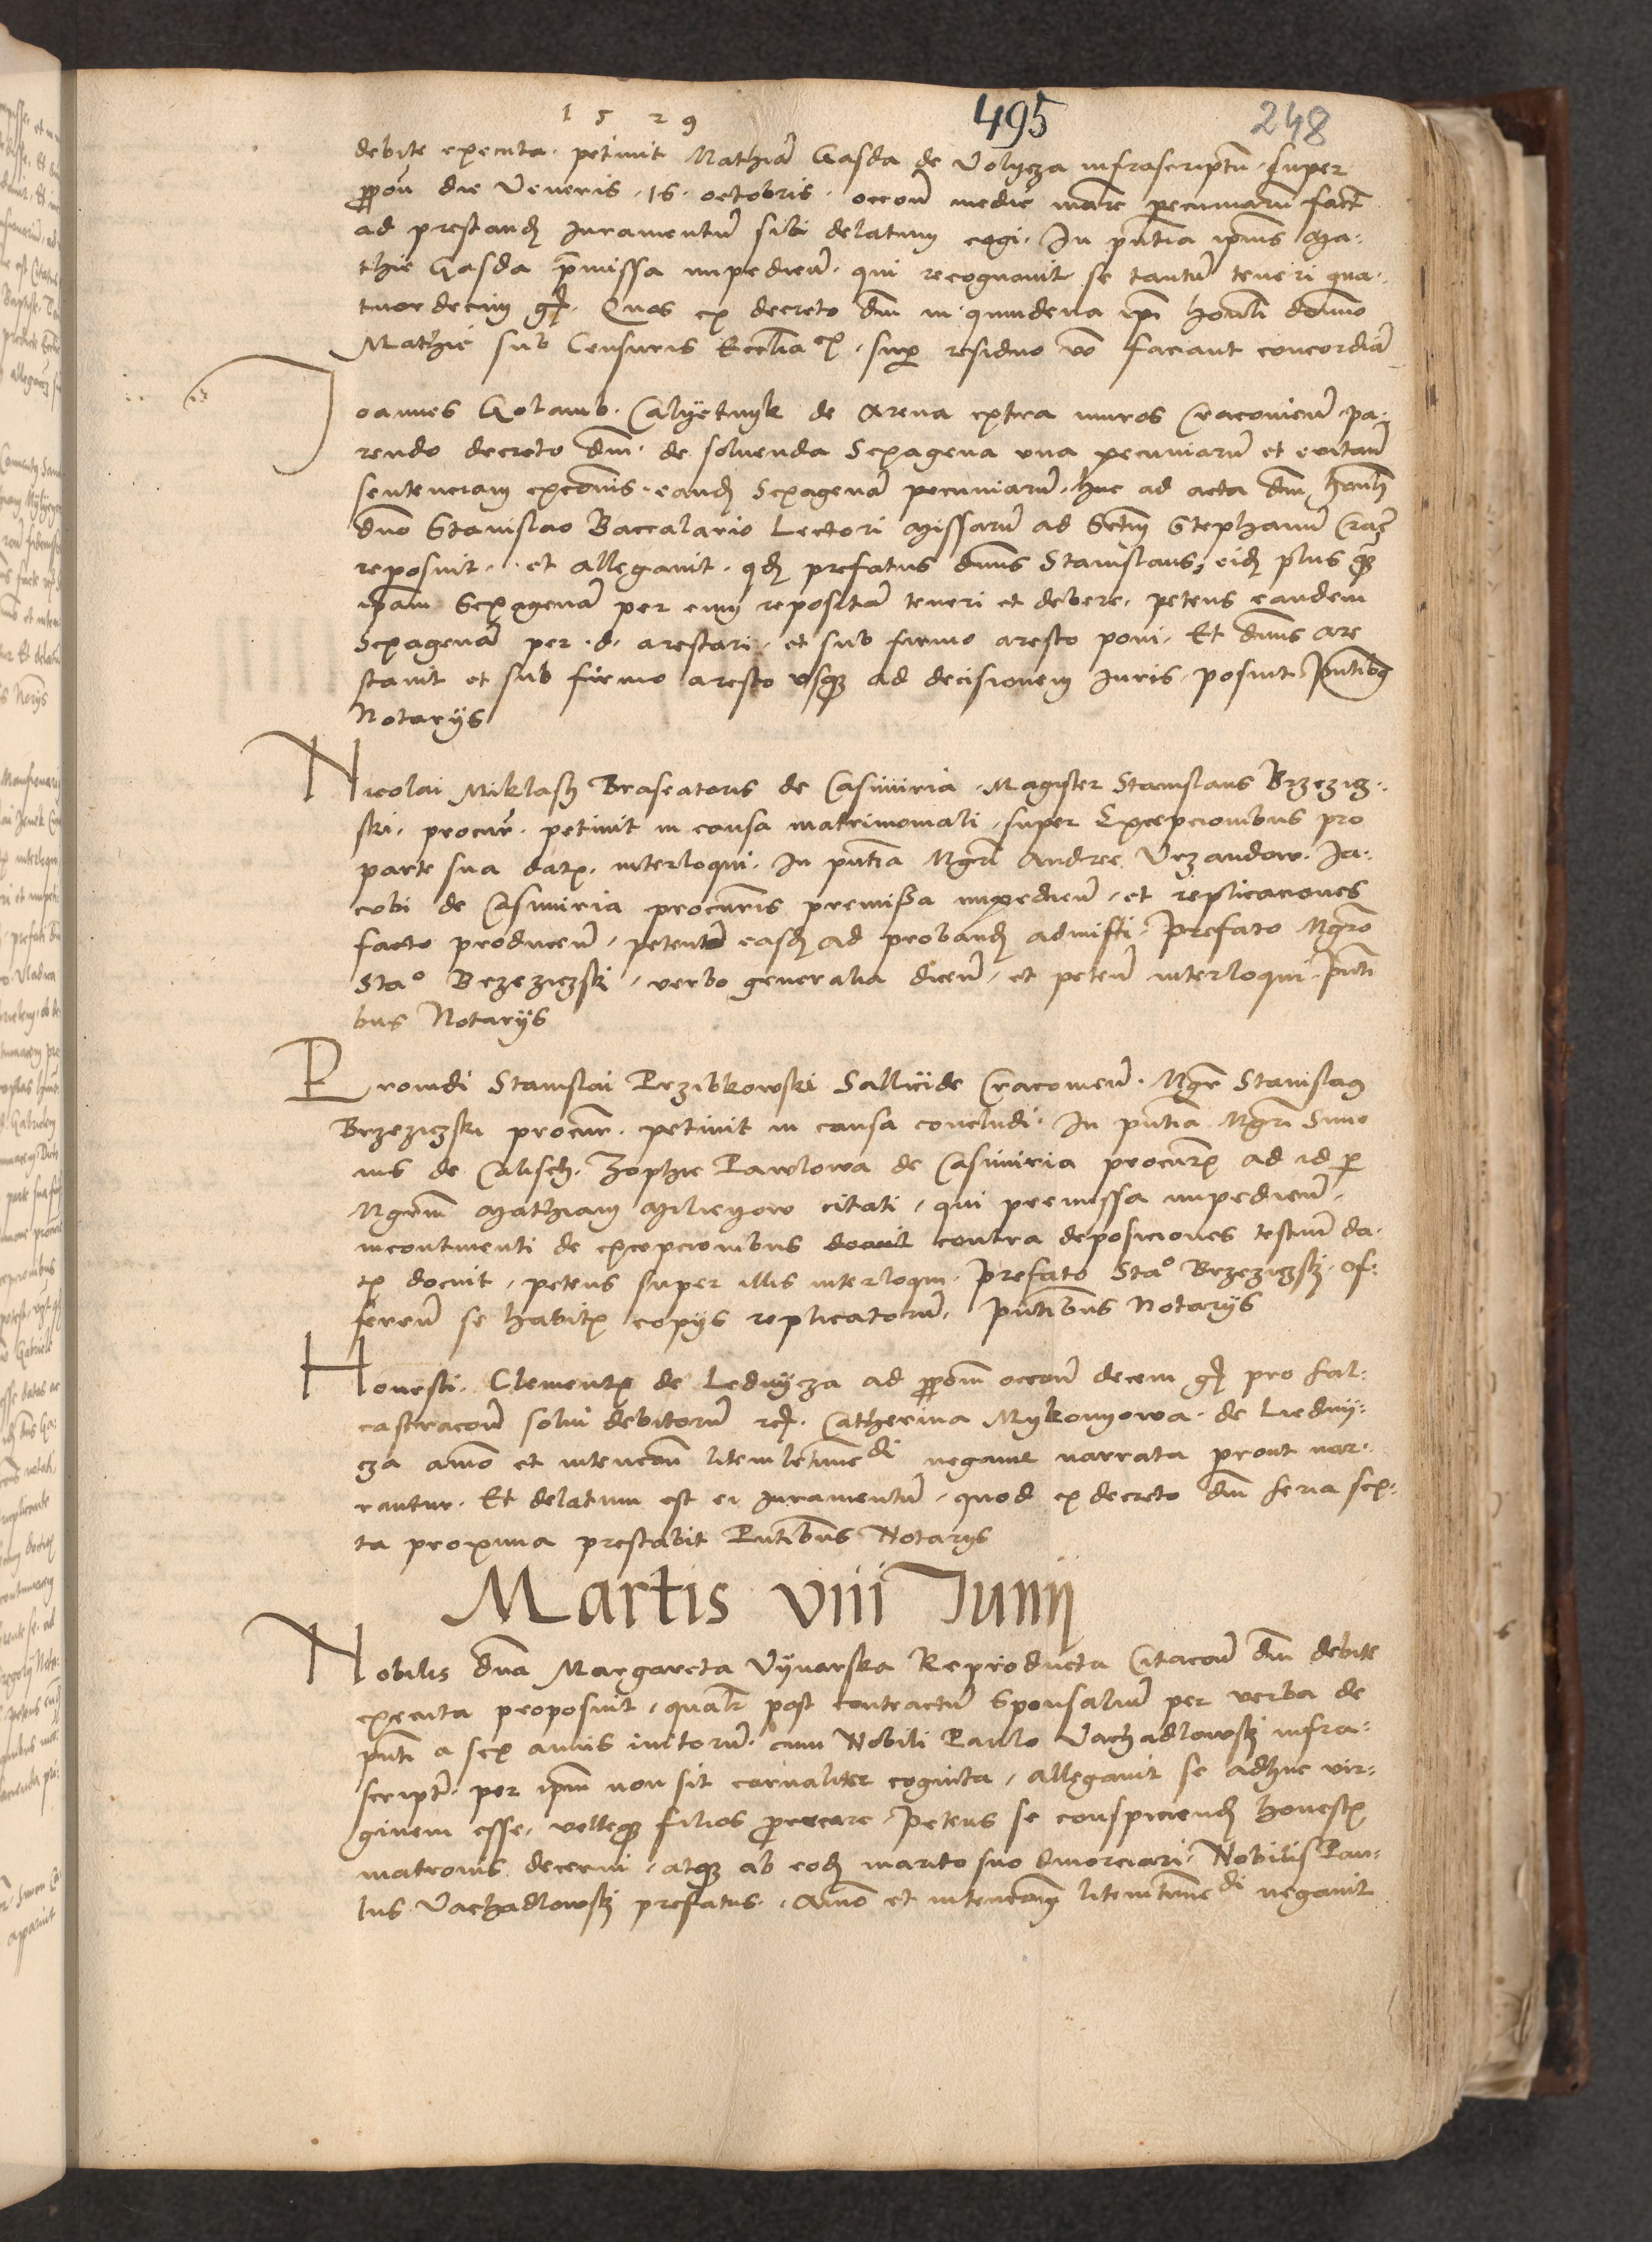 1529
495
248
debite executa. petivit Mathiā Gasda de Volycza infrascriptū. super
ppoū die Veneris. 15. octobris. occoū medie marce pecuniarū fact
ad prestandȝ iuramentū sibi delatum cogi. In pñtia ipius Ma:
thie Gasda p̃missa impedieñ. qui recognovit se tantū teneri qua:
tuordecim gȝ. Quos ex decreto dñi in quindena ipi honli domino
Mathie sub Censuris Ecclīacȝ. sup residuo vo faciant concordiā
Joannes Golamb. Calyetnyk de Arena extra muros Cracovieñ. pa:
rendo decreto dñi. de solvenda Sexagena una pecuniarū et evitañ
sentenciam excōnis. eandȝ Sexagenā pecuniarū. huc ad acta dñi honli
dño Stanislao Baccalario Lectori Missarū ad Sctm Stephanū Crac
reposuit. et allegavit. qdȝ prefatus dnus Stanislaus, eidȝ plus qȝ
ipam Sexagenā per eum repositā teneri et debere. petens eandem
Sexagenā per .d. arestari. et sub firmo aresto poni. Et dnus are
stavit et sub firmo aresto usqȝ ad decisionem iuris. posuit. Pñtibȝ
Notarijs
Nicolai Miklash Braseatoris de Casimiria. Magister Stanislaus Brzezicz:
ski. procur. petivit in causa matrimoniali. super Excepcionibus pro
parte sua datȝ. interloqui. In pñtia Mgri Andree Vrzandow. Ja:
cobi de Casimiria procuris premissa impedieñ. et replicaciones
facto produceñ. petentē easdȝ ad probandȝ admitti. Prefato Mgro
Stao Brzeziczski. verbo generalia diceñ. et peteñ interloqui. Pñti
bus Notarijs
Providi Stanislai Przibkowski Sallicide Cracovieñ. Mgr Stanislaus
Brzeziczski procur. petivit in causa concludi. In pñtia Mgri Simo
nis de Calisch. Zophie Pawlowa de Casimiria procurȝ ad id p
Mgrum Mathiam citati. qui premissa impedieñ.
incontinenti de excepcionibus docuit contra deposiciones testium da:
tȝ docuit. petens super illis interloqui. Prefato Stao Brzeziczski. of:
fereñ se habitȝ copijs replicatorū. Pñtibus Notarijs
Honesti. Clementȝ de Lednycza ad ppoem occoū decem gȝ pro fal:
castracoū solvi debitorū rȝ. Catherina Mykonyowa. de Liedny:
cza aīmo et intencoū litem letimie di negavit narrata prout nar:
rantur. Et delatum est ei iuramentū. quod ex decreto dñi feria sex:
ta proxima prestabit Pñtibus Notarijs
Martis viii Junij
Nobilis dña Margareta Vynarska Reproducta Citacoū dñi debite
executa proposuit. qualr post contractū Sponsaliū per verba de
pñti a sex annis initorū. cum Nobili Paulo Vachadlowskȝ infra:
scripto. per ipm non sit carnaliter cognita. allegavit se adhuc vir:
ginem esse. velleqȝ filios procreare. Petens se conspiciendȝ honestȝ
matronis decerni. atqȝ ab eodȝ marito suo divorciari. Nobilis Pau:
lus Vachadlowskȝ prefatus. aīmo et intencoñ litem timie di negavit